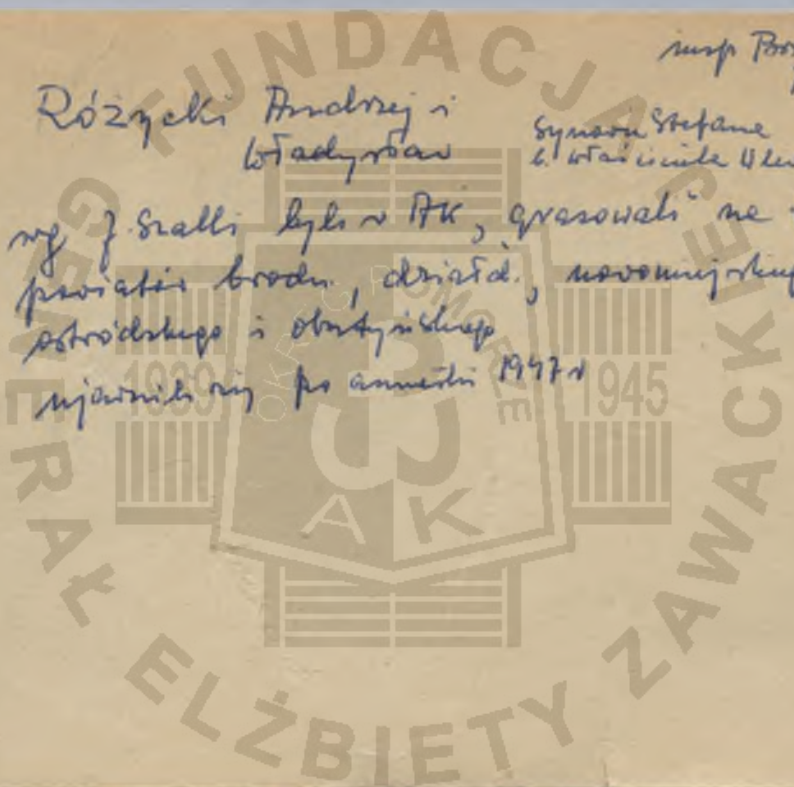 insp Bro
Różycki Andrzej i
Władysław
synowie Stefana
b. właściciela Wlew
wg J. Szalli byli w AK, grasowali na
powiatów brodn., działd., nowomiejskiego
ostródzkiego i olsztyńskiego
ujawnili się po amnestii 1947 r
FUNDACJA
GENERAŁ ELŻBIETY ZAWACKIEJ
OKRĘG POMORZE
1939 1945
AK